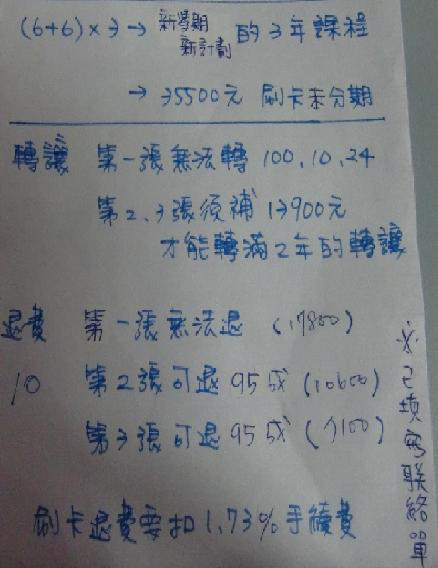 (6+6)×3→ 新學期 新計劃 的3年課程
→ 35500元 刷卡未分期
轉讓 第一張無法轉 100.10.24
第2、3張須補 13900元
才能轉滿2年的轉讓
退費 第一張無法退 (17800)
10 第2張可退95成 (10600)
第3張可退95成 (7100)
刷卡退費要扣1.73%手續費
※已填寫聯絡單